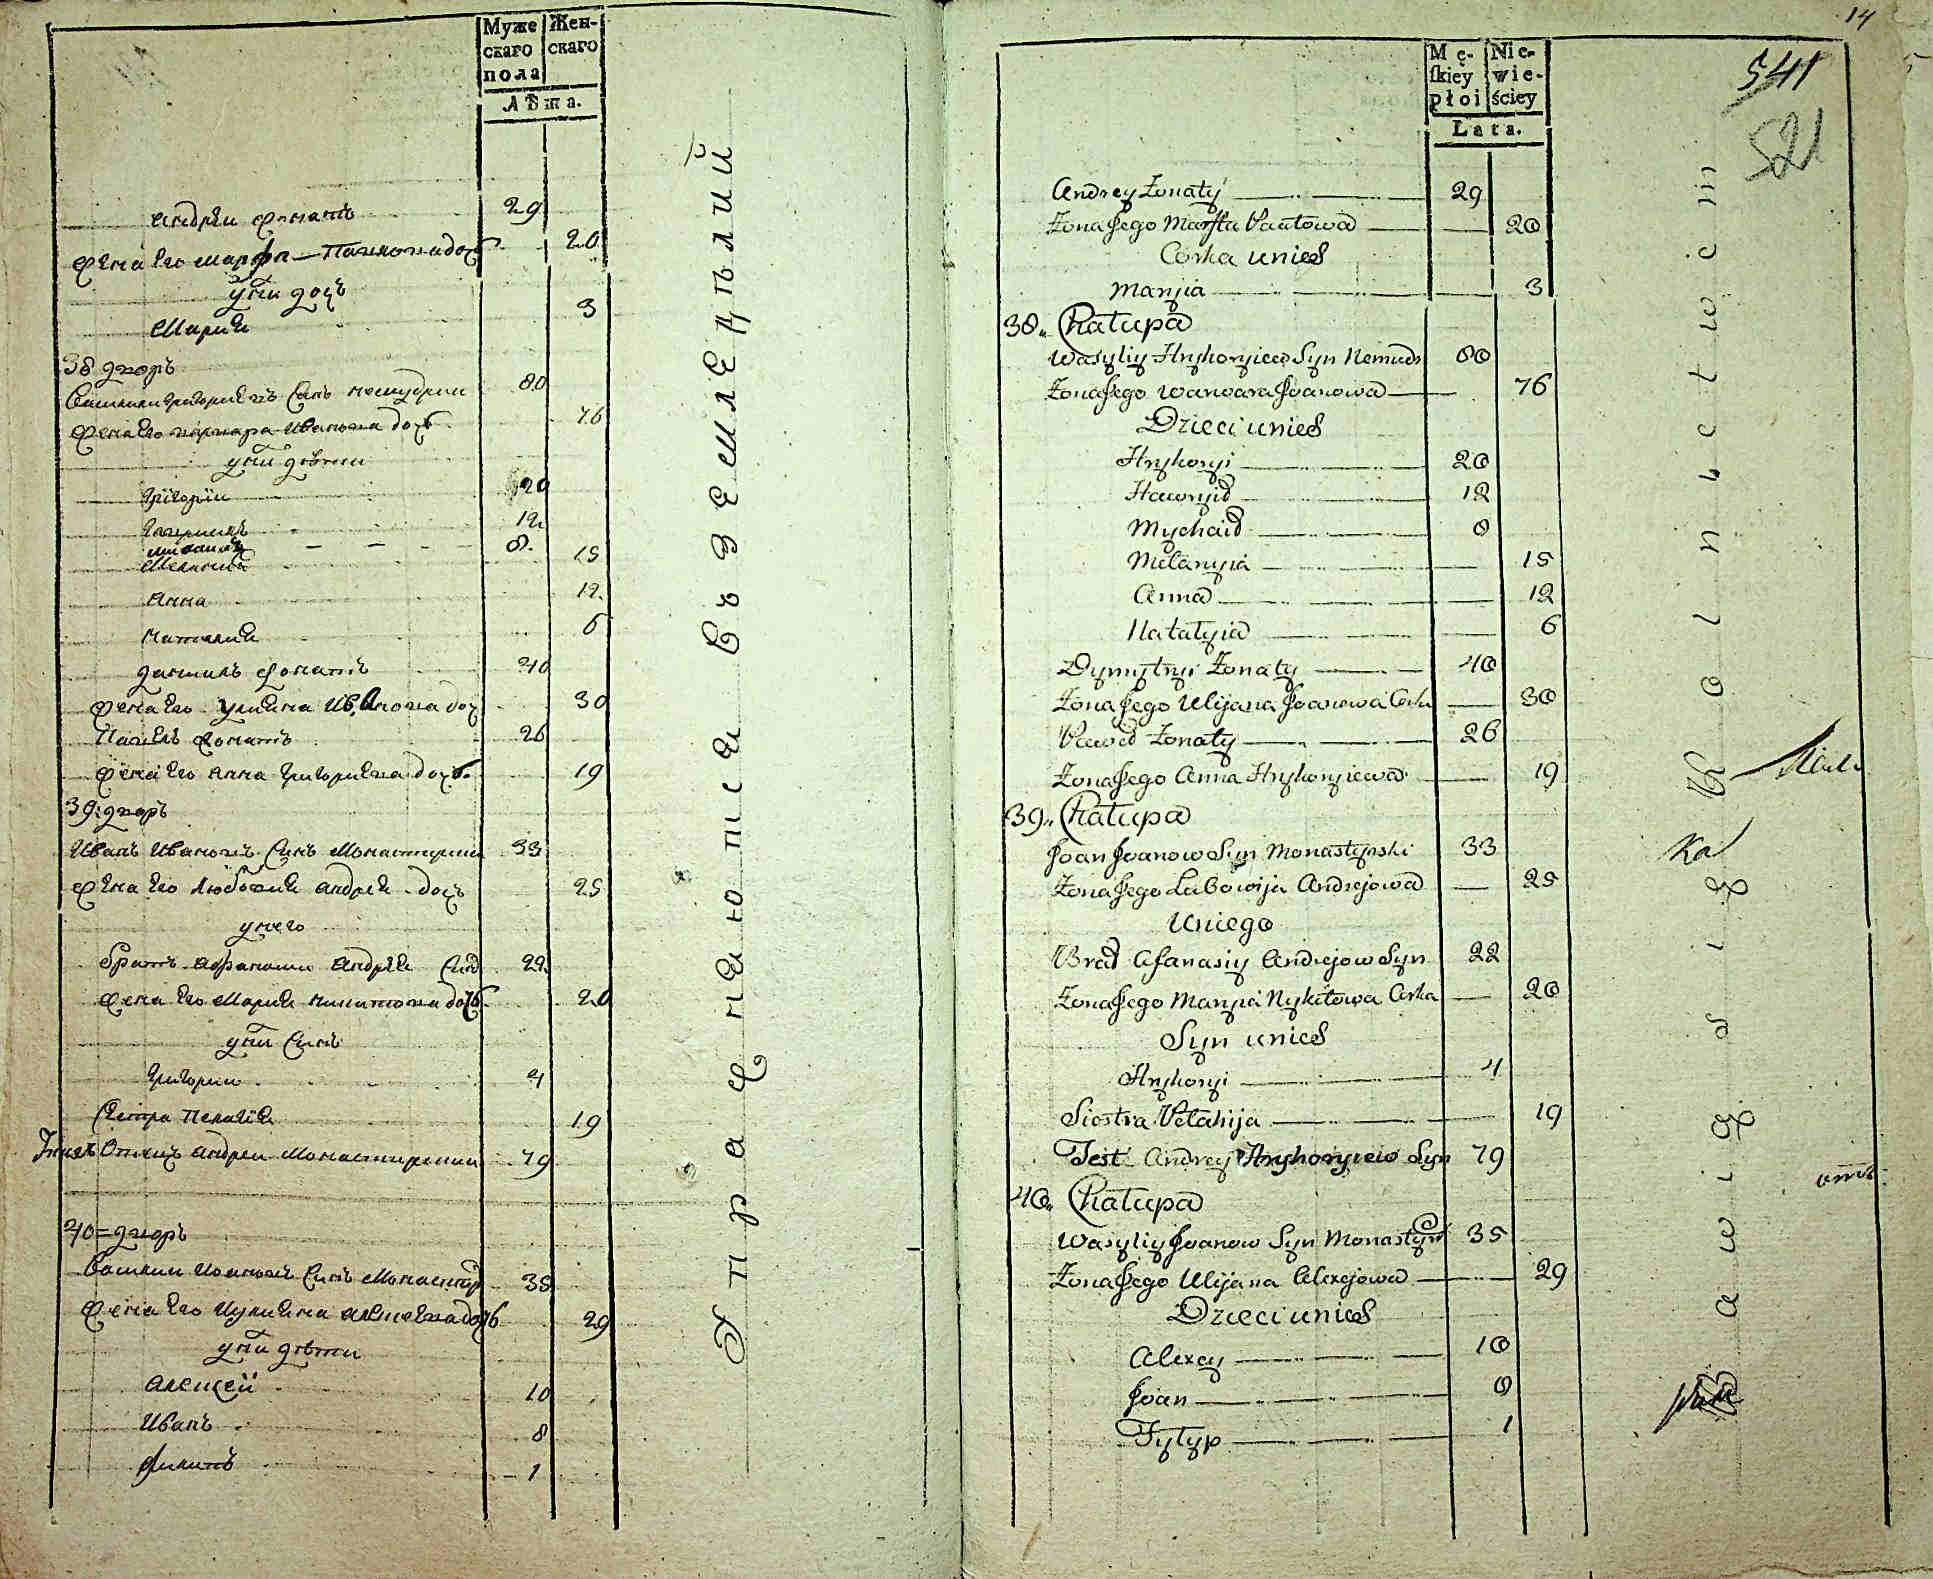 Муже
скаго
пола
Жен-
скаго
Лѣта.
Андрѣи жонатъ 29
жена Его марфа Павлова доч 20
у них дочъ
Мария 3
38 дворъ
Василии Григориевъ Синъ немудрии 80
жена Его варвара Иванова дочь 76
у них дѣтти
Григории 20
Гавриилъ 12
михаилъ 8.
Мелания 15
Анна 12.
наталия 6
жонатъ 40
жена Его Улиана Иванова доч 30
Павелъ жонатъ 26
жена Его Анна Григориева дочь. 19
39: дворъ
Иванъ Ивановъ Синъ Монастирский 33
жена Его Любовия андрѣе дочъ 25
у него
братъ Афанасии Андрѣе Син 22.
жена Его Мария никитова дочь 20
у них Синъ
Григории 4
Сестра Пелагия 19
Отецъ Андреи Монастирский 79
40= дворъ
Василии Иванов Синъ Монастир 35
жена Его Иулиана алексѣева дочь 29
у них дѣтти
Алексей 10
Иванъ 8
филипъ 1
Упражняются въ земледѣлий
14
541
521
Mę-
skiey
płoi
Nie-
wie-
ściey
Lata.
Andrey Żonaty 29
Żona Jego Marfta Pawłowa 20
Corka u nich
Maryia 3
38. Chałupa
Wasyliy Hryhoryiew Syn Nemudr 80
Żona Jego Warwara Joanowa 76
Dzieci u nich
Hryhoryi 20
Hawryił 12
Mychaił 8
Mełanyia 15
Anna 12
Natałyia 6
Dymytryi Żonaty 40
Żona Jego Ulijana Joanowa Corka 30
Paweł Żonaty 26
Żona Jego Anna Hryhoryiewa 19
39. Chałupa
Joan Joanow Syn Monastyrski 33
Żona Jego Lubowija Andrejowa 25
U niego
Brat Afanasiy Andrejow Syn 22
Żona Jego Maryia Nykitowa Corka 20
Syn u nich
Hryhoryi 4
Siostra Pełahija 19
Test Andrey Hryhoryiew Syn 79
40. Chałupa
Wasyliy Joanow Syn Monastyrs 35
Żona Jego Ulijana Alexejowa 29
Dzieci u nich
Alexey 10
Joan 8
Fylyp 1
Bawią się Rolnictwem
ка